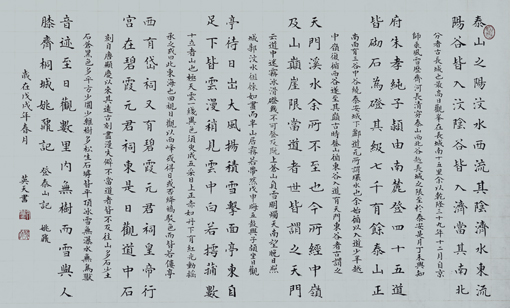 泰山之陽汶水西流其陰濟水東流
陽谷皆入汶陰谷皆入濟當其南北
分者古長城也最高日觀峯在長城南十五里余以乾隆三十九年十二月自京
師乘風雪歷齊河長清穿泰山西北谷越長城之限至於泰安是月丁未與知
府朱孝純子潁由南麓登四十五里道
皆砌石為磴其級七千有餘泰山正
南面有三谷中谷繞泰安城下酈道元所謂環水也余始循以入道少半越
中嶺復循西谷遂至其巔古時登山循東谷入道有天門東谷者古謂之
天門溪水余所不至也今所經中嶺
及山巔崖限當道者世皆謂之天門
云道中迷霧冰滑磴幾不可登及既上蒼山負雪明燭天南望晚日照
城郭汶水徂徠如畫而半山居霧若帶然戊申晦五鼓與子潁坐日觀
亭待日出大風揚積雪擊面亭東自
足下皆雲漫稍見雲中白若摴蒱數
十立者山也極天雲一線異色須臾成五采日上正赤如丹下有紅光動搖
承之或曰此東海也回視日觀以西峯或得日或否絳皓駁色而皆若僂亭
西有岱祠又有碧霞元君祠皇帝行
宮在碧霞元君祠東是日觀道中石
刻自唐顯慶以來其遠古刻盡漫失僻不當道者皆不及往山多石少土
石蒼黑色多平方少圜少雜樹多松生石罅皆平頂冰雪無瀑水無鳥獸
音跡至日觀數里內無樹而雪與人
膝齊桐城姚鼐記 登泰山記 姚鼐
歲在戊戌年春月 英天書